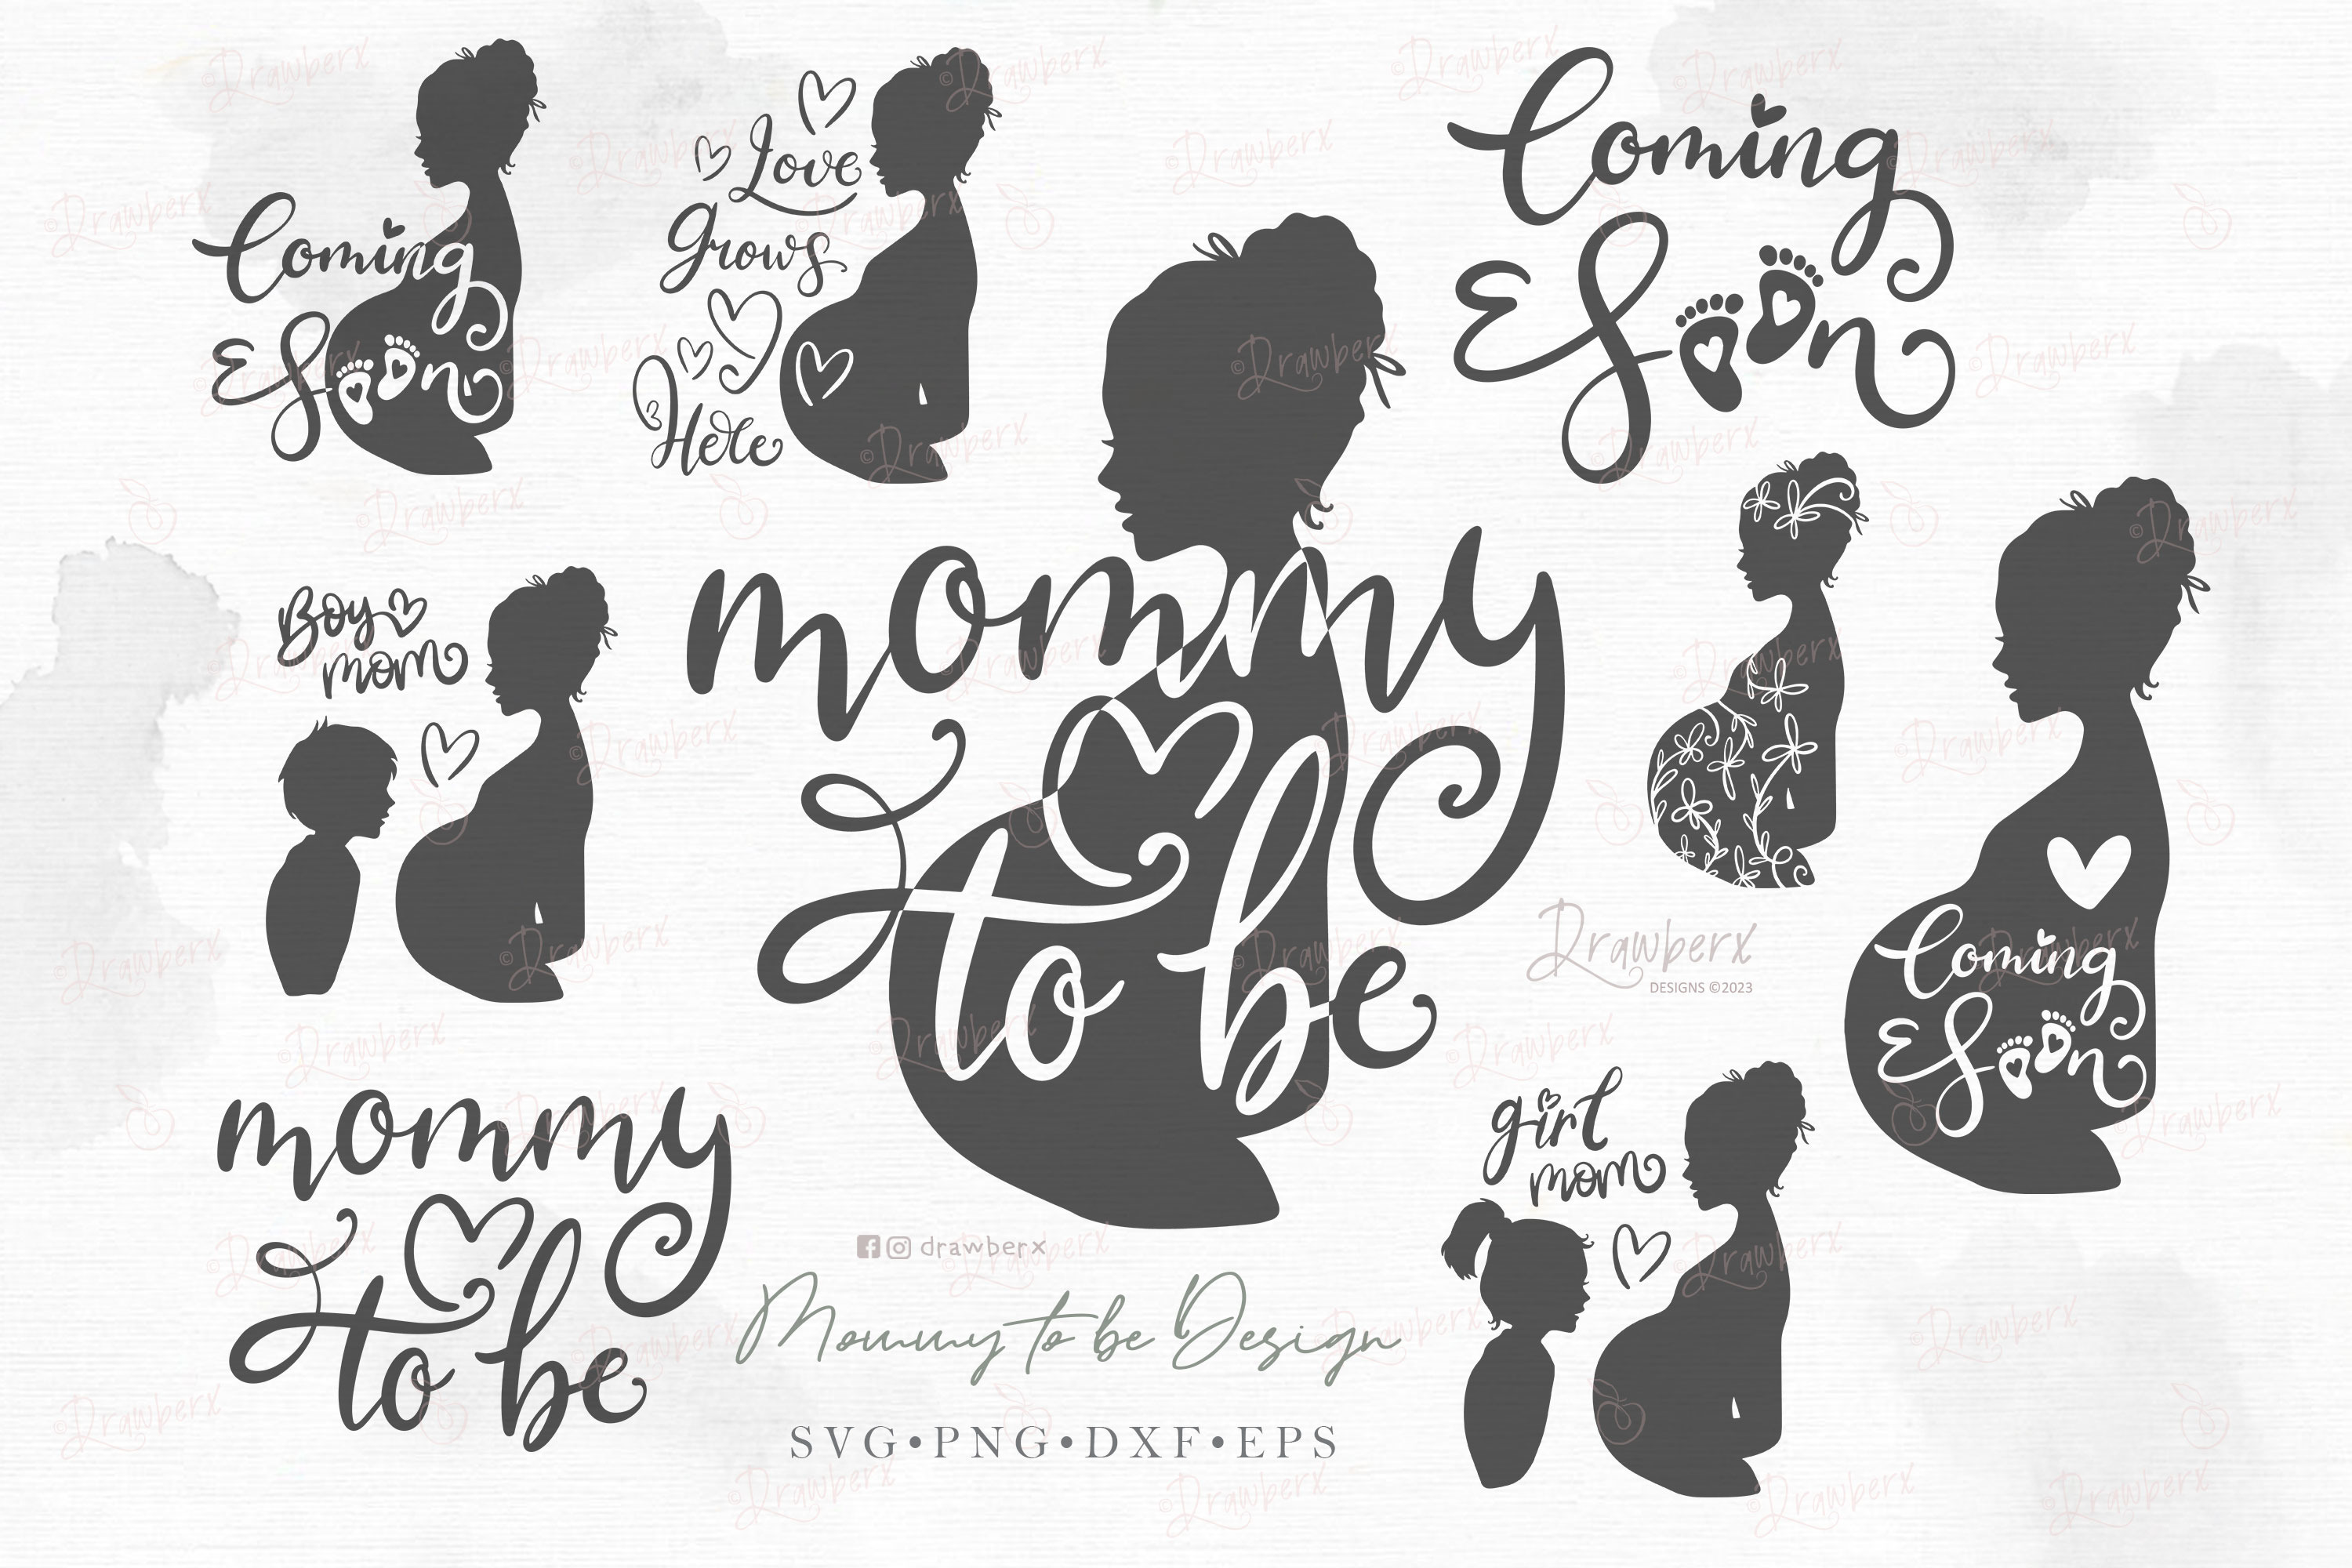 Coming
Soon
Love
Grows
Here
Coming
Soon
Boy
mom
mommy
to be
Drawberx
DESIGNS ©2023
Coming
Soon
girl
mom
mommy
to be
drawberx
Mommy to be Design
SVG•PNG•DXF•EPS
©Drawberx